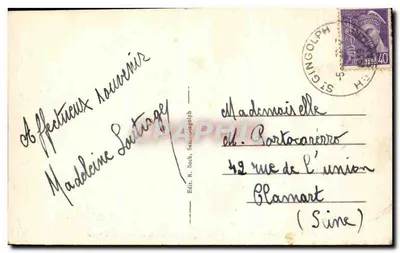 Affectueux souvenir
Madeleine
Edit. R. Soch, St-Gingolph
ST GINGOLPH
40
Mademoiselle
M. Portocarerro
42 rue de l'union
Clamart
(Seine)